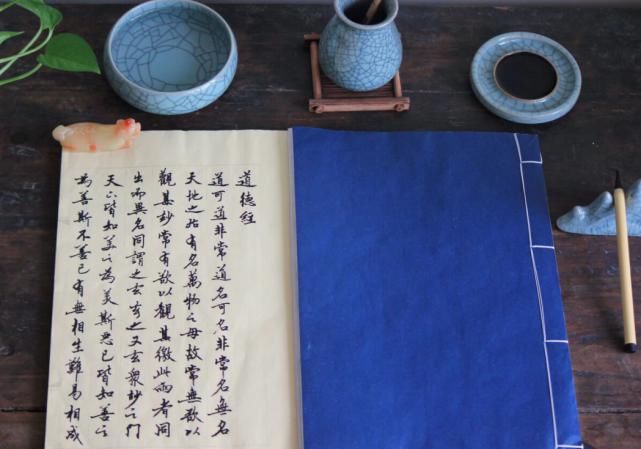 道德經
道可道非常道名可名非常名無名
天地之始有名萬物之母故常無欲以
觀其妙常有欲以觀其徼此兩者同
出而異名同謂之玄玄之又玄眾妙之門
天下皆知美之為美斯惡已皆知善之
為善斯不善已有無相生難易相成